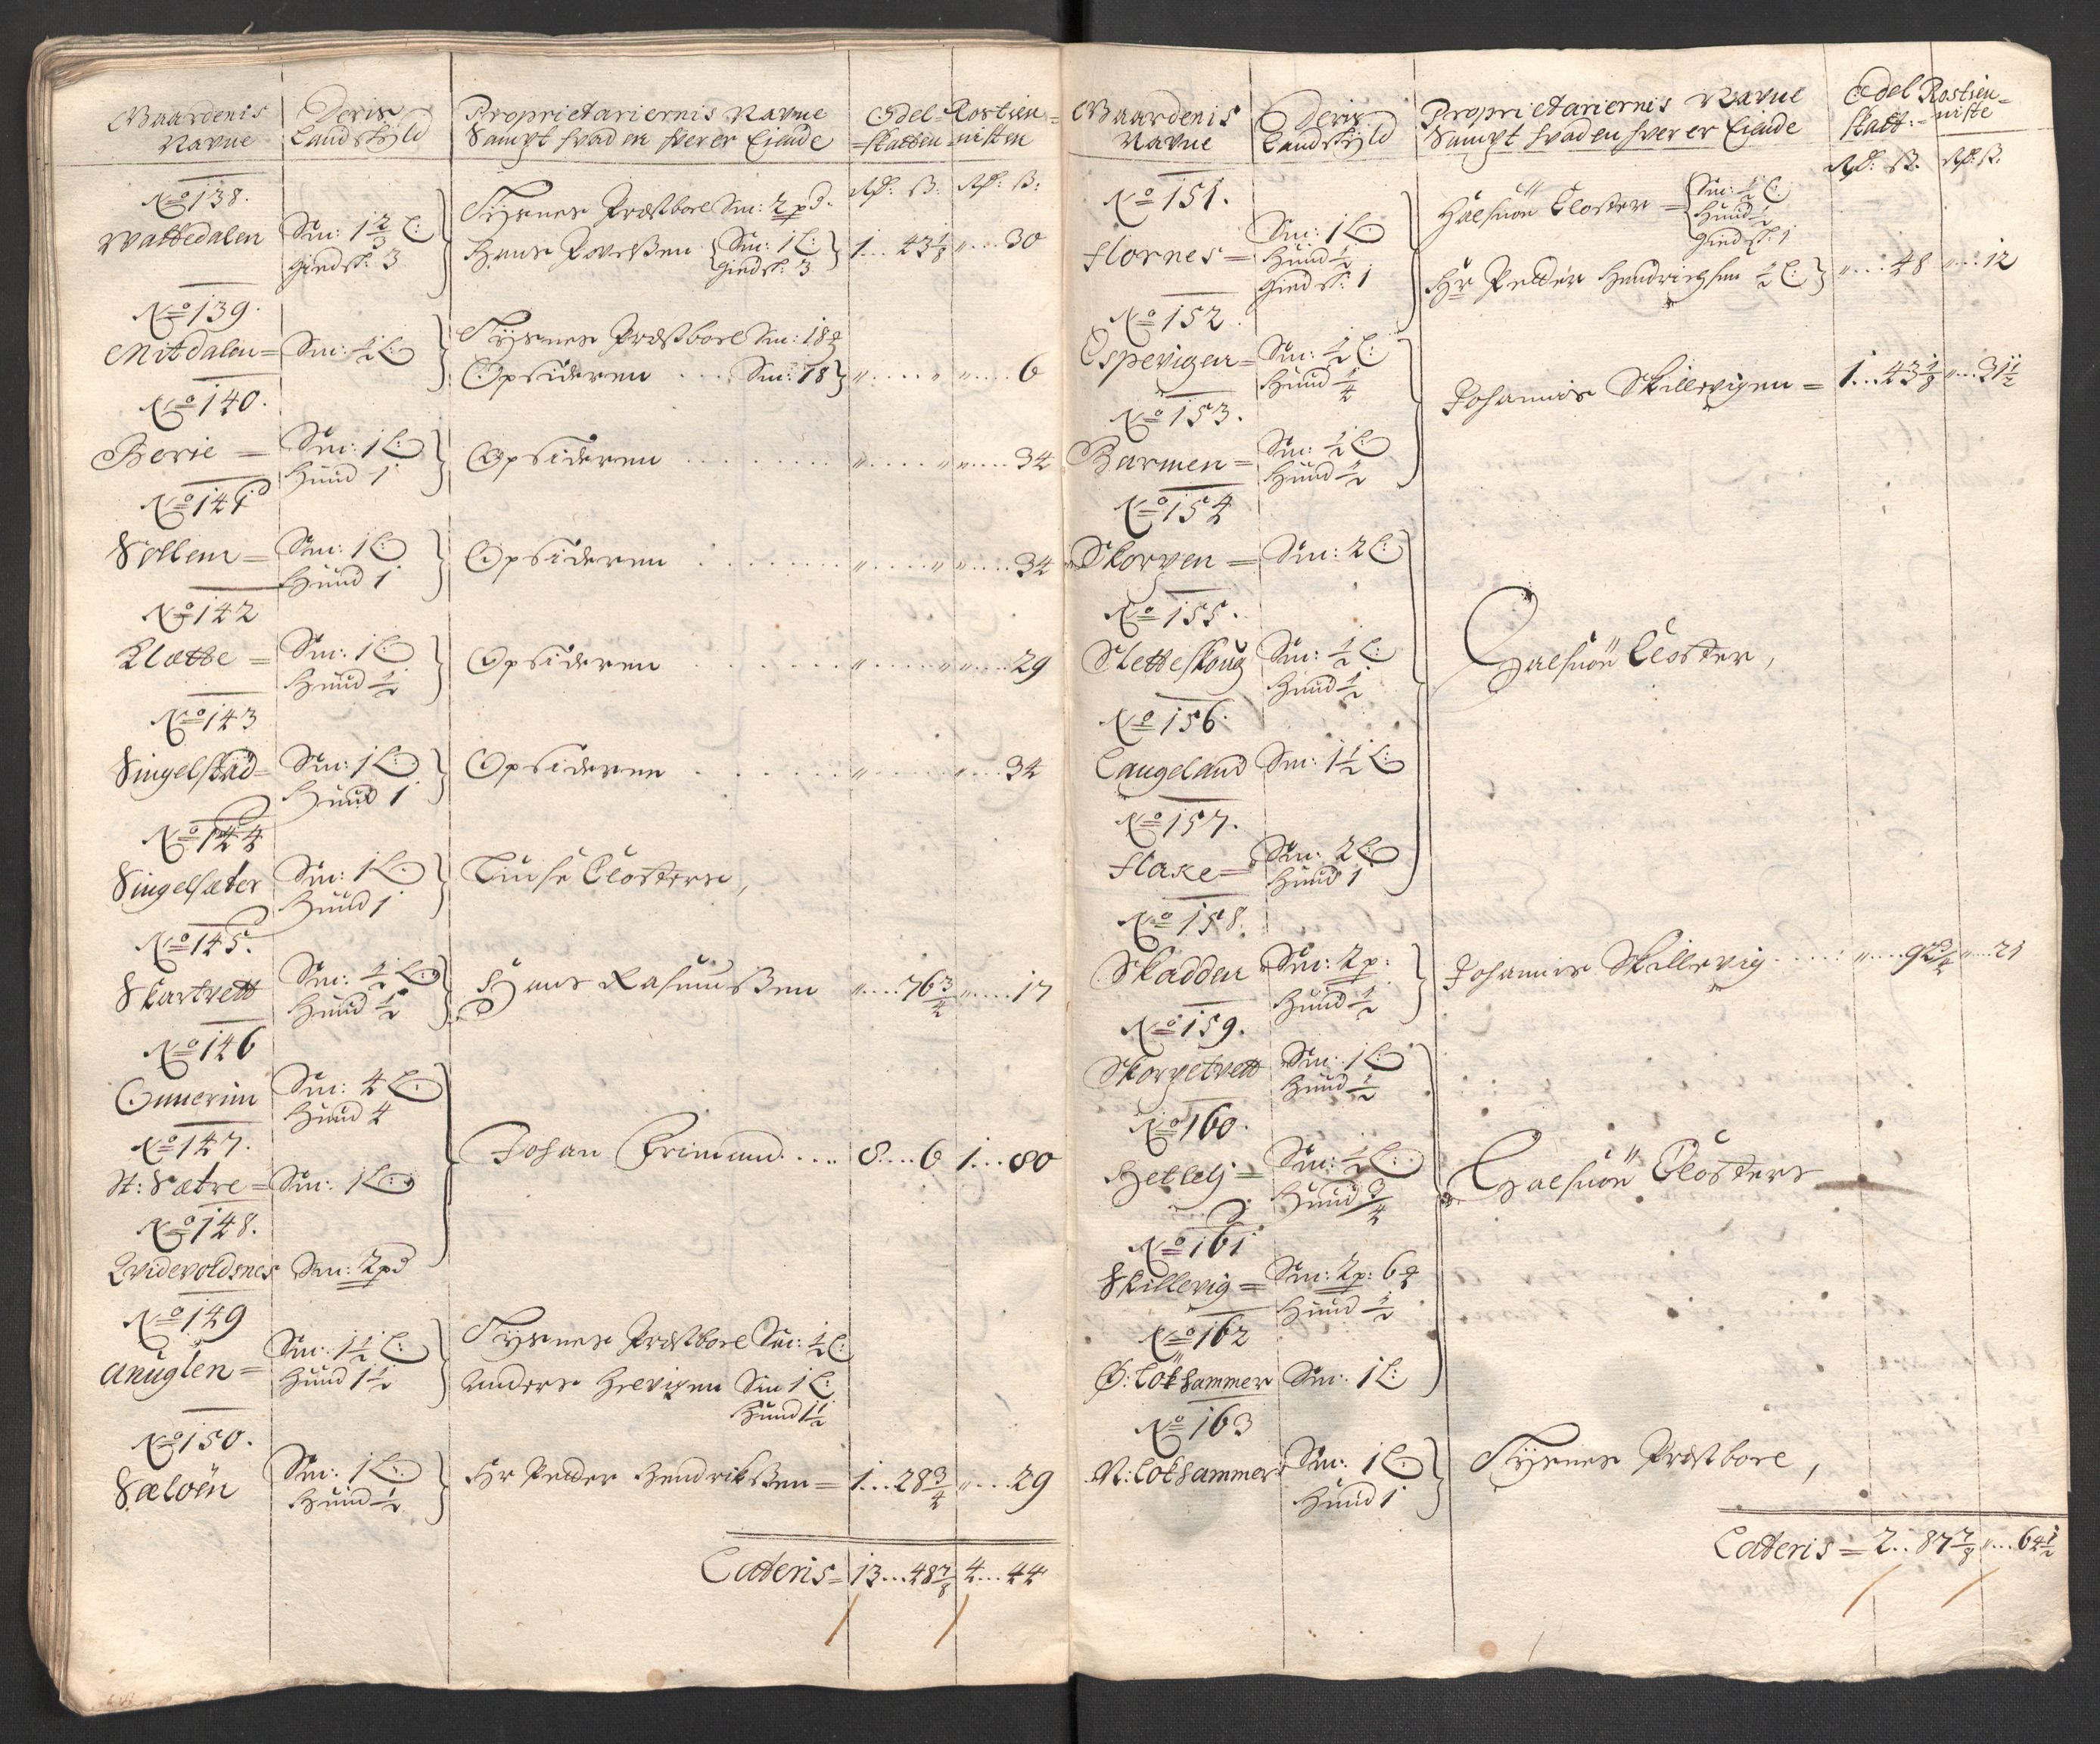 Gaardenis Navne
Deris Landskyld
Proprietariernis Navne Sampt hvad en hver er Eiende
Odel-skatten
Rostieniste
Rdr: ß: Rdr: ß:
No 138.
Wattedalen
Sm: 1 2/3 L:
Giedsk: 3
Tysnes Præstbool Sm: 2 pd.
Hans
Sm: 1 L:
Giedsk: 3
1...43 1/8 „....30
No 139.
Mitdalen =
Sm: 1/2 L:
Tysnes Præstbool Sm: 18
Opsideren ... Sm: 18
„.....„ „....6
No 140.
Berie =
Sm: 1 L:
Hund 1
Opsideren ........ „.....„ „....34
No 141
Sollem =
Sm: 1 L:
Hund 1
Opsideren ....... „.....„ „....34
No 142
Klætte =
Sm: 1 L:
Hund 1/2
Opsideren ....... „.....„ „....29
No 143
Singelstad =
Sm: 1 L:
Hund 1
Opsideren ....... „..... „....34
No 144
Singelsæter
Sm: 1 L:
Hund 1
Liuse Closters,
No 145.
Skartvett
Sm: 1/2 L:
Hund 1/2
Hans Rasmussen „....76 3/4 „....17
No 146
Onnerim
Sm: 4 L:
Hund 4
No 147.
St: Sætre =
Sm: 1 L:
Johan Frimand .... 8...6 1...80
No 148.
Qvidevoldsnes
Sm: 2 pd
No 149
Anuglen =
Sm: 1 1/2 L:
Hund 1 1/2
Tysnes Præstbool Sm: 1/2 L:
Anders Helvigen Sm 1 L:
Hund 1 1/2
No 150.
Sæløen
Sm: 1 L:
Hund 1/2
Hr Peder Hendrikssen = 1...28 3/4 „...29
Lateris = 13...48 7/8 4...44
Gaardenis Navne
Deris Landskyld
Proprietariernis Navne Sampt hvad en hver er Eiende
Odel skatt:
Rostieniste
Rdr: ß. Rdr: ß.
No 151.
Flornes =
Sm: 1 L:
Hund 1/2
Giedsk: 1
Halsnøe Closter =
Sm: 1/2 L:
Hund 1/2
Giedsk: 1
Hr Pedder Hendrichsen 1/2 L: „...48 „...12
No 152.
Espevigen =
Sm: 1/2 L:
Hund 1/4
Johannis Skillevigen = 1...43 1/8 „...31 1/2
No 153.
Barmen =
Sm: 1/2 L:
Hund 1/2
No 154
Skorpen =
Sm: 2 L:
No 155.
Sletteskoug
Sm: 1/2 L:
Hund 1/2
Halsnøe Closter,
No 156.
Langeland
Sm: 1 1/2 L:
No 157.
Flake =
Sm: 2 L:
Hund 1
No 158.
Skadden
Sm: 2 p:
Hund 1/2
Johannis Skillevig ..... „....92 3/4 „...21
No 159.
Skorpetvett
Sm: 1 L:
Hund 1/2
No 160.
Hetlelj =
Sm: 1/2 L:
Hund 3/4
Halsnøe Closters
No 161
Skillevig =
Sm: 2 p: 6
Hund 1/2
No 162
Ø: Løkhammer
Sm: 1 L:
No 163
N: Løkhammer
Sm: 1 L:
Hund 1
Tysnes Præstbool,
Lateris = 2...87 7/8 „...64 1/2